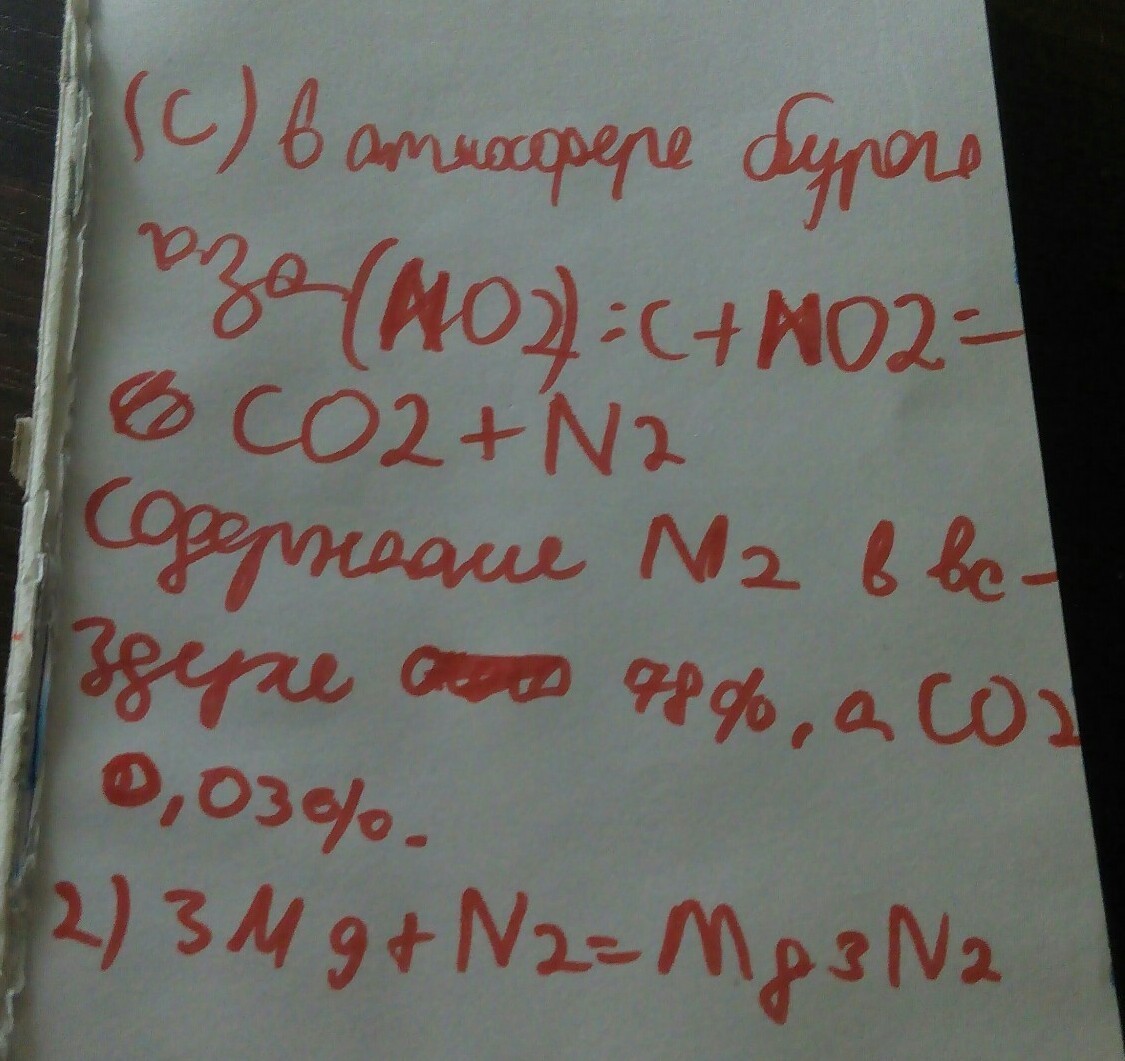 (C) в атмосфере бурого
газа (NO2) : C + NO2 =
CO2 + N2
Содержание N2 в во-
здухе 78%, а CO2
0,03%.
2) 3Mg + N2 = Mg3N2